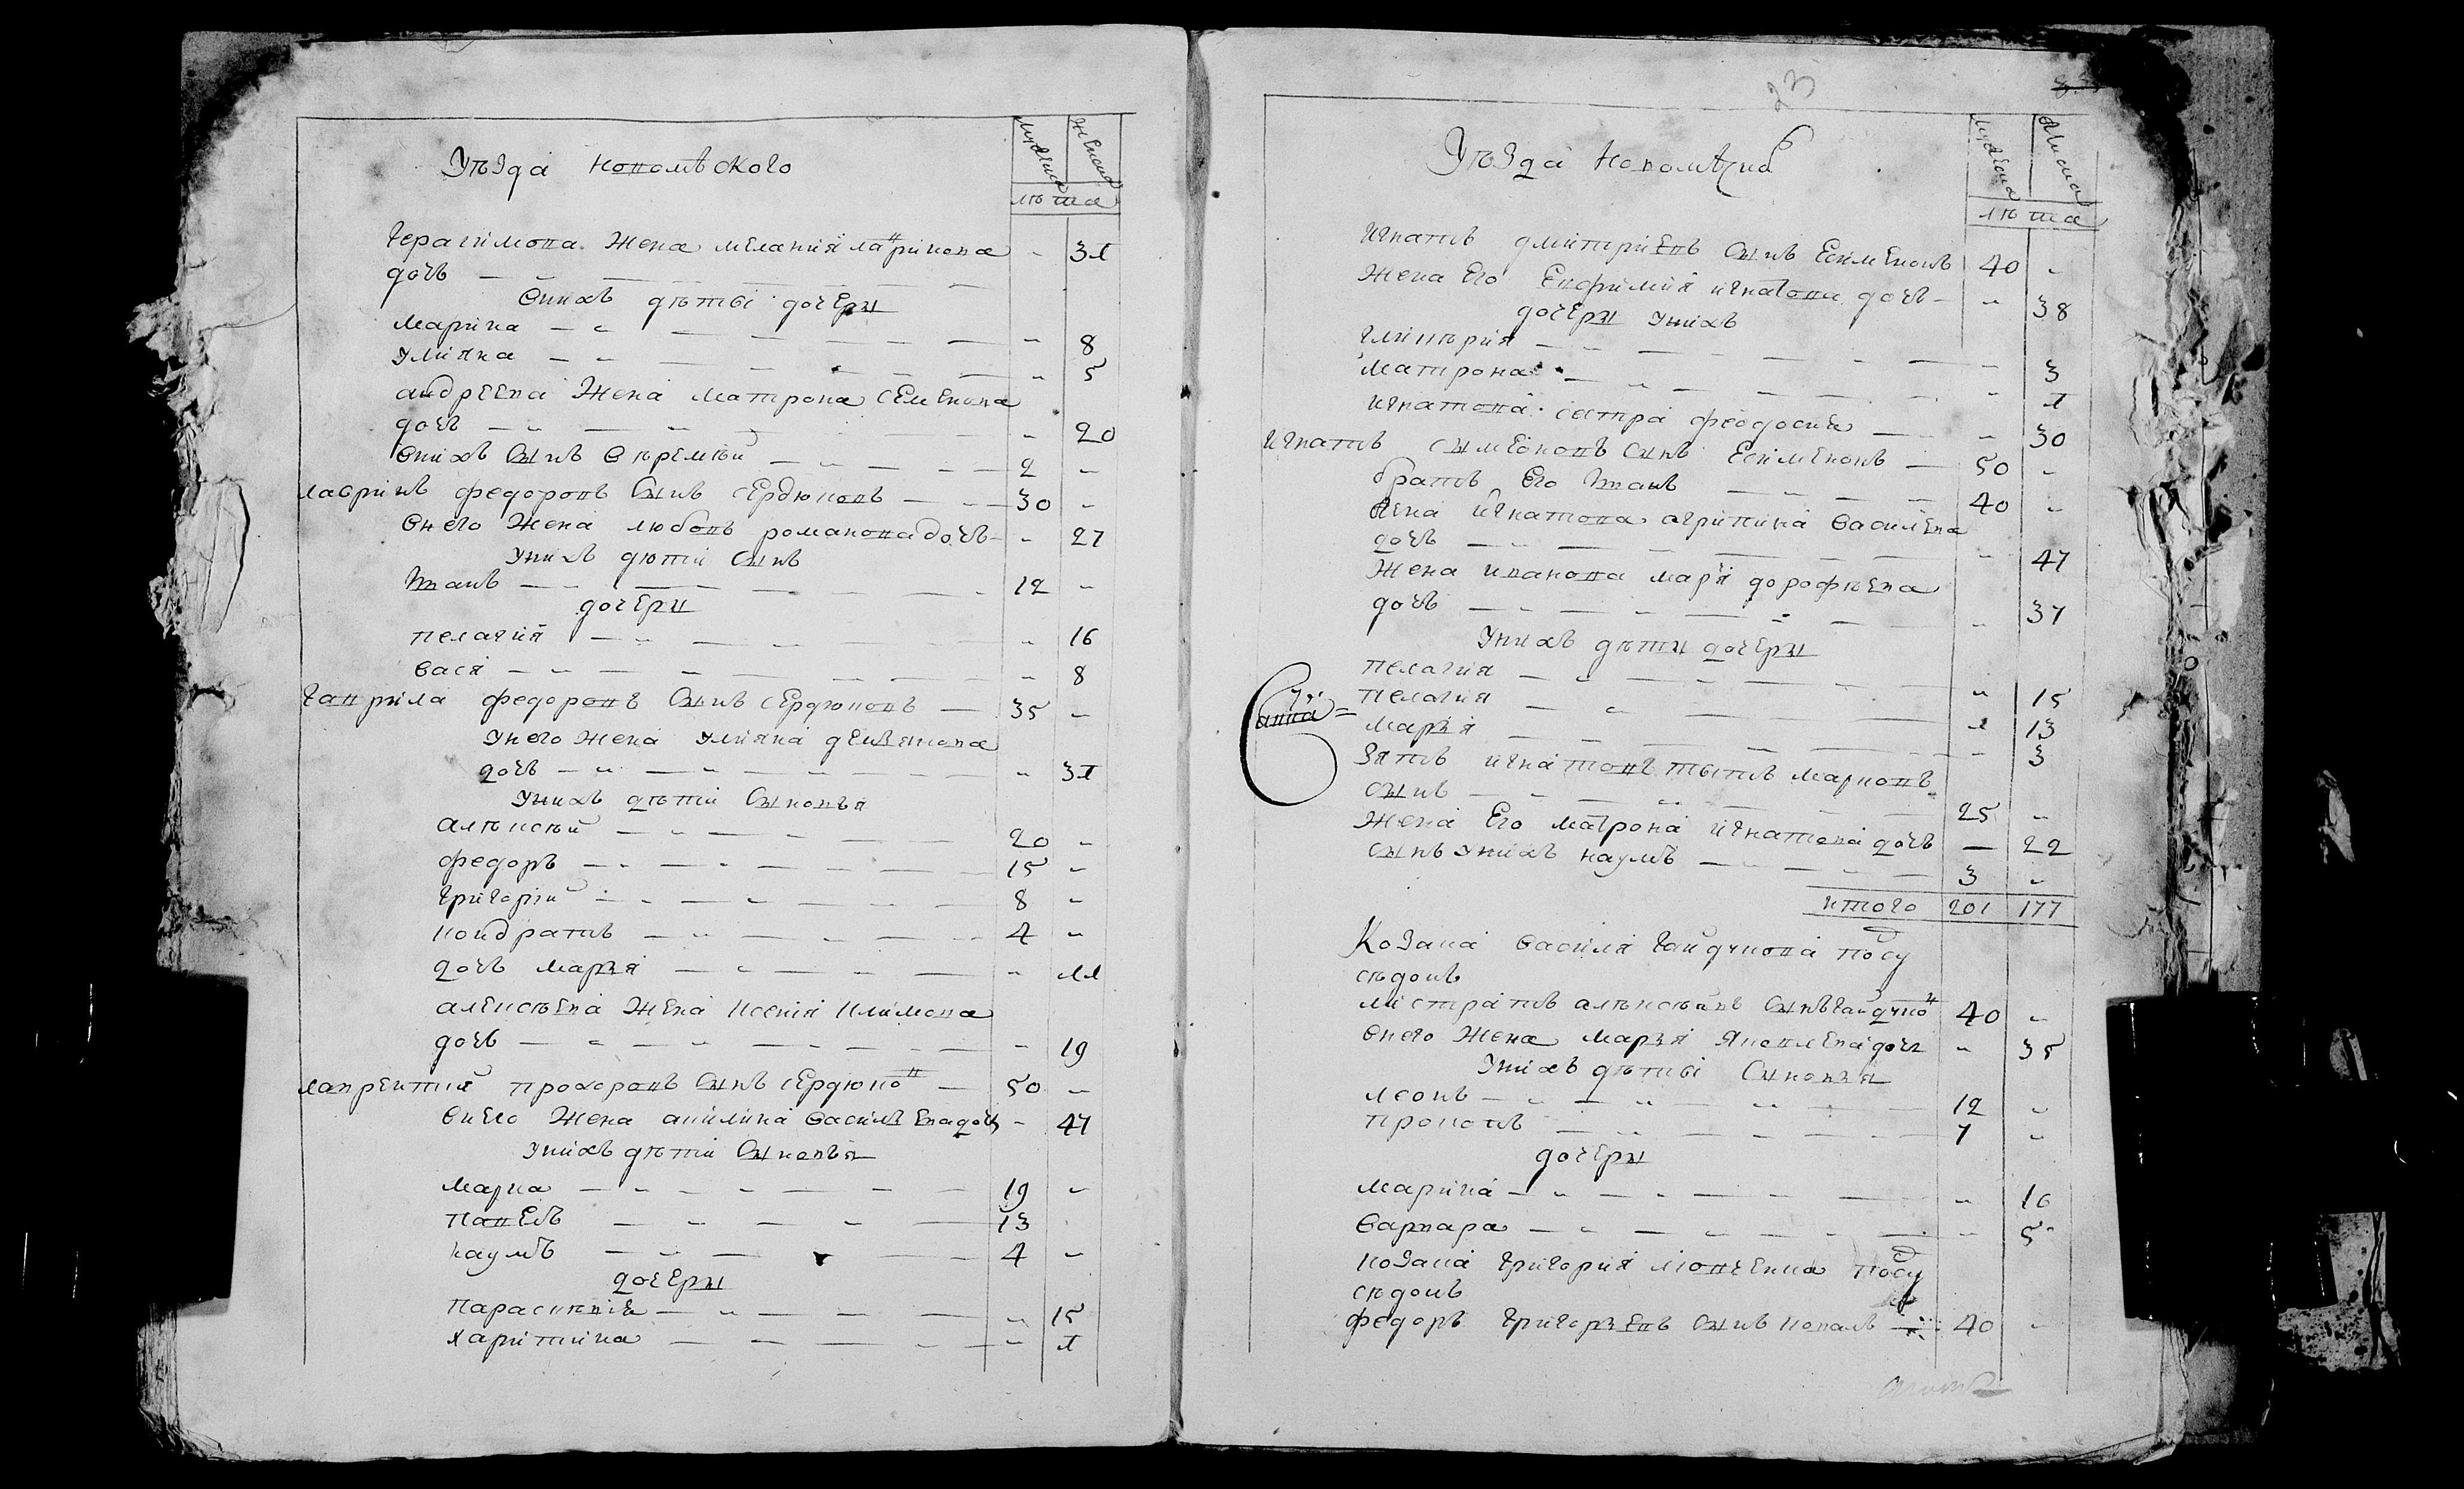 Уѣзда коволѣского
мужеска
женска
лѣта
Герасимова жена меланія лаврикова - 31
дочъ
Внихъ дѣтві дочеры
марина " 8
уліяна " 5
андреева жена матрона семенова
дочъ " 20
Внихъ сынъ Еѳремѣй 2 "
лавринъ федоровъ сынъ сердюковъ 30 "
Внего жена любовъ романова дочъ " 27
Унихъ дѣтій сынъ
Иванъ 12 "
дочеры
пелагия " 16
вася " 8
гаврила федоровъ сынъ сердюковъ 35 "
Унего жена улияна
дочъ " 31
Унихъ дѣтій сыновья
алѣксѣй 20 "
федоръ 15 "
григорій 8 "
кондратъ 4 "
дочъ марья " 11
алексѣева жена ксенія климова
дочъ " 19
лаврентий прохоровъ сынъ сердюковъ 50 "
Внего жена акилина васильева дочъ " 47
Унихъ дѣтій сыновья
марко 19 "
павелъ 13
наумъ 4 "
дочеры
параскевія " 15
харитина " 1
23
Уѣзда коволѣског
мужеска
женска
лѣта
игнатъ дмитриевъ сынъ Есименокъ 40 "
жена его Евфимия игнатова дочъ " 38
дочеры унихъ
гликѣрия " 3
матрона " 1
игнатова сестра феодосия " 30
игнатъ сымеоновъ сынъ Есименокъ 50 "
братъ его Иванъ 40 "
жена игнатова агрипина василева
дочъ " 47
жена иванова марья дорофѣева
дочъ " 37
Унихъ дѣты дочеры
пелагия " 15
пелагия " 13
марья " 3
зятъ игнатовъ титъ марковъ
сынъ 25 "
жена его матрона игнатова дочъ 22
сынъ унихъ наумъ 3 "
итого 201 177
Козака василя гайдукова подсу
сѣдокъ
алѣксѣевъ сынъ гайдуко 40 "
Внего жена марья яковлева дочъ " 35
Унихъ дѣтві сыновья
леонъ 12 "
прокопъ 7 "
дочеры
марина " 10
варвара " 5
козака григория подсу
сѣдокъ
федоръ григорьевъ сынъ ковалъ 40 "